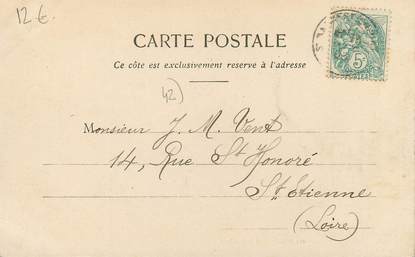 12 €
CARTE POSTALE
Ce côté est exclusivement reservé à l'adresse
42)
Monsieur J. M. Vent
14, Rue St Honoré
St. Étienne
(Loire)
5c